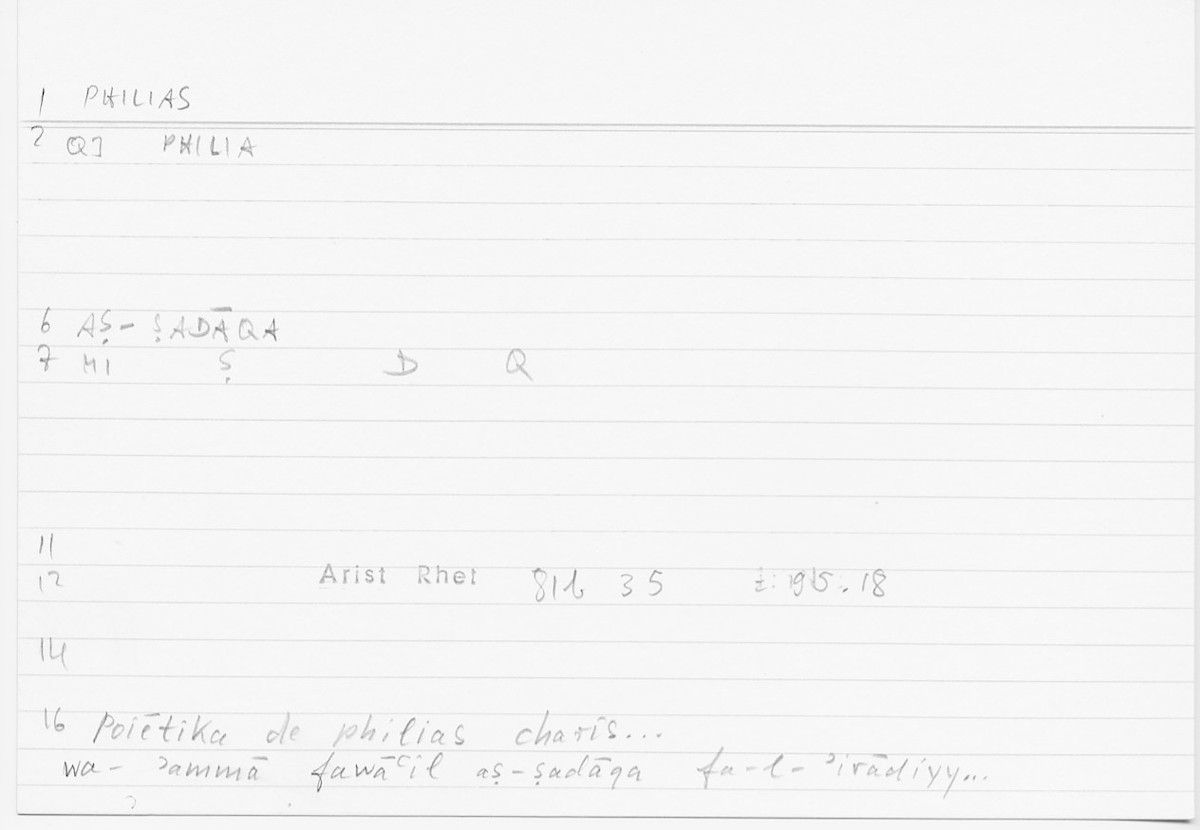 1 PHILIAS
2 QJ PHILIA
6 AṢ-ṢADĀQA
7 MI Ṣ D Q
11
12 Arist Rhet 81b 35 195.18
14
16 Poiētika de philias charis...
wa-ʾammā fawāʿil aṣ-ṣadāqa fa-l-ʾirādiyy...